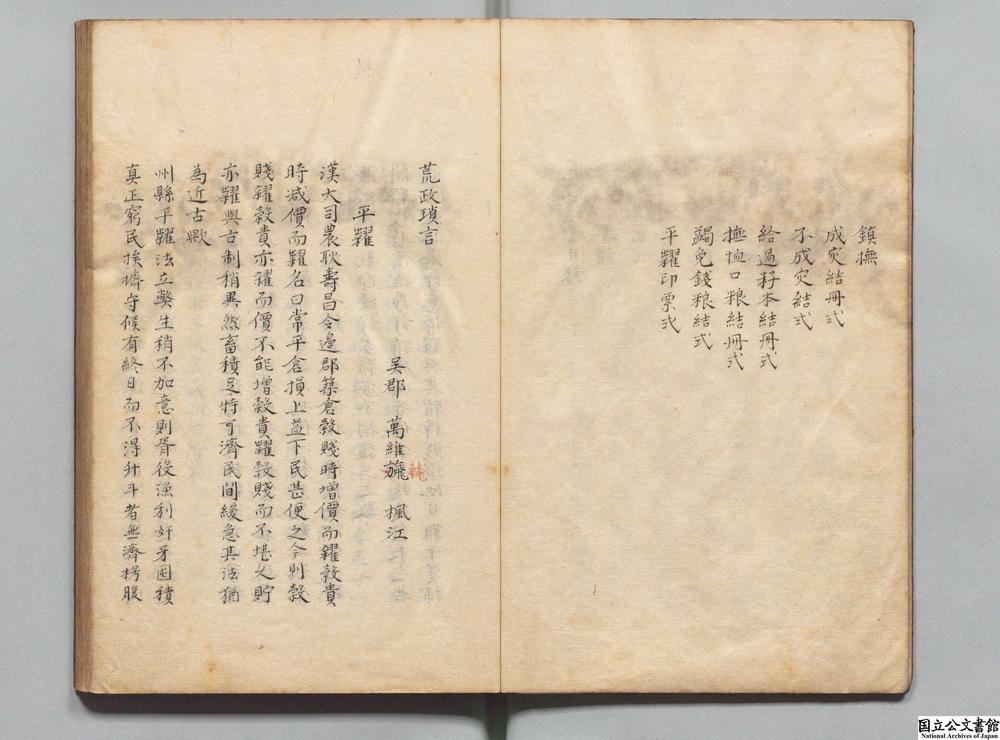 鎮撫
成灾結冊式
不成灾結式
給過籽本結冊式
撫恤口粮結冊式
蠲免錢粮結式
平糶印票式
荒政瑣言
吳郡 萬維 楓江
平糶
漢大司農耿壽昌令邊郡築倉穀賤時增價而糴穀貴
時減價而糶名曰常平倉損上益下民甚便之今則穀
賤糴穀貴亦糴而價不能增穀貴糶穀賤而不堪久貯
亦糶與古制稍異然畜積足恃可濟民間緩急其法猶
為近古歟
州縣平糶法立獘生稍不加意則胥役漁利奸牙囤積
真正窮民挨擠守候有終日而不得升斗者無濟枵腹
国立公文書館
National Archives of Japan